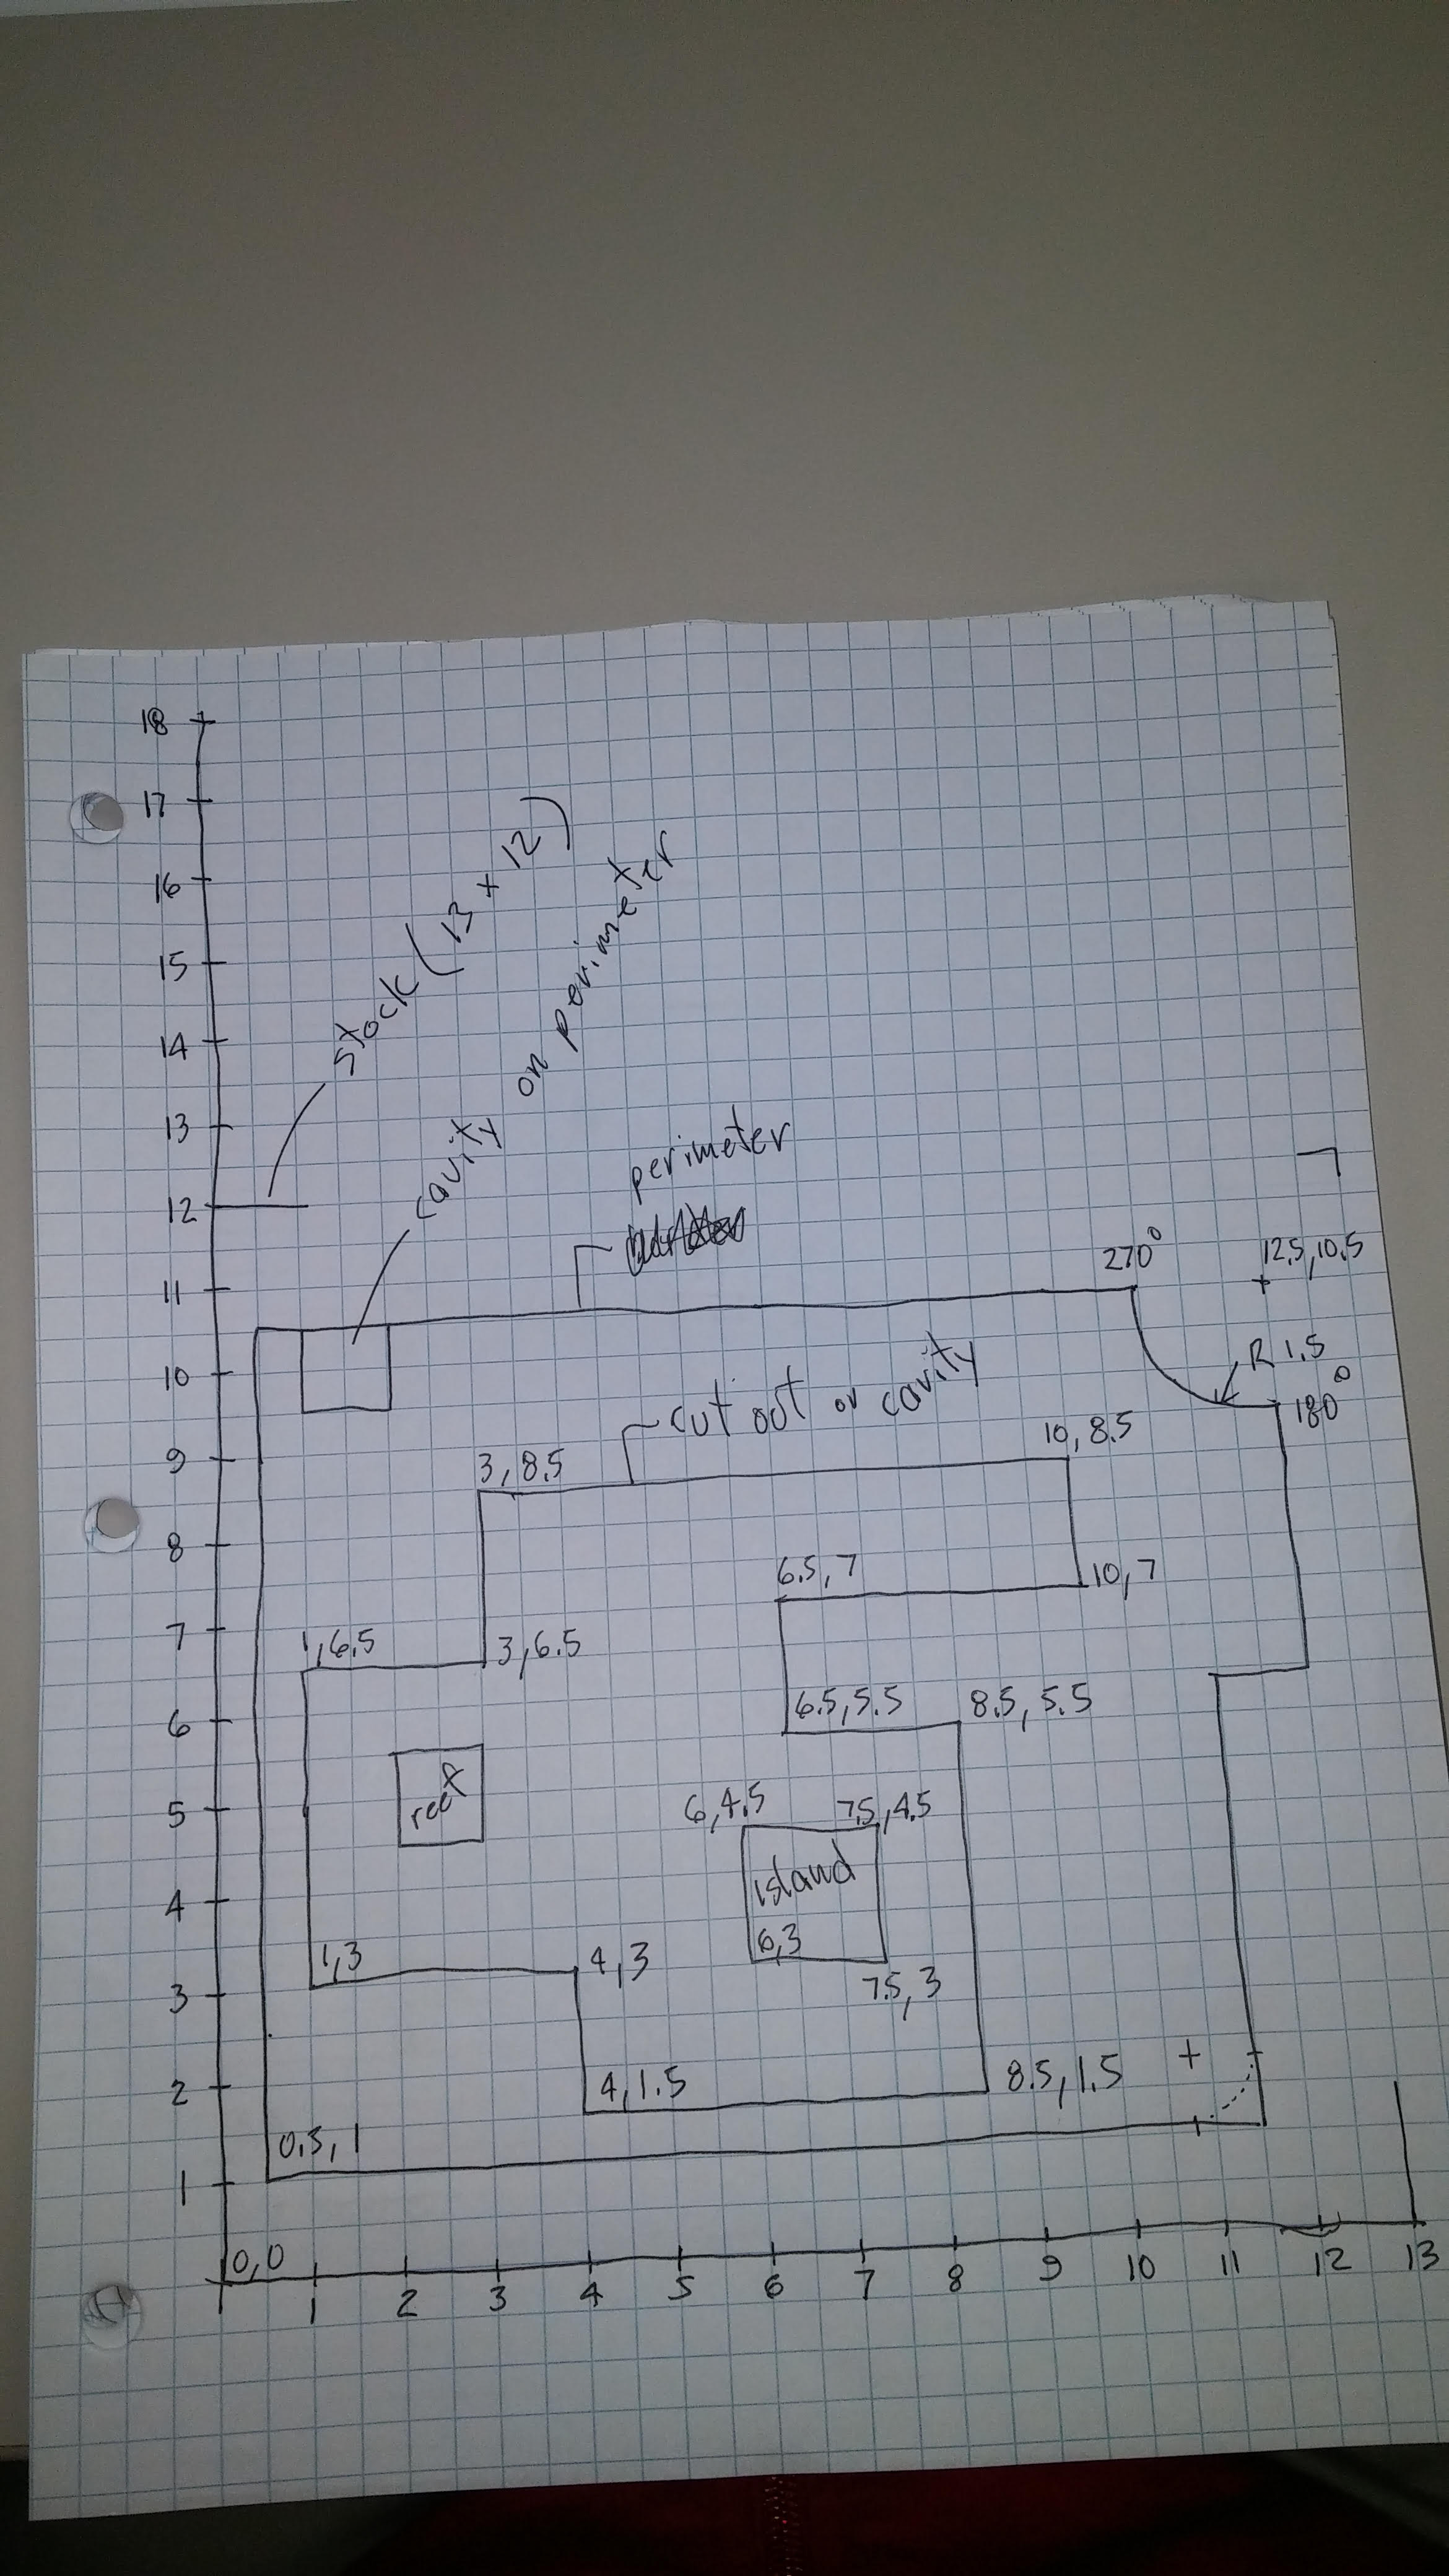 18
17
16
15
14
13
12
11
10
9
8
7
6
5
4
3
2
1
stock (13 x 12)
cavity on perimeter
perimeter
270°
12.5, 10.5
R 1.5
180°
cut out or cavity
3, 8.5
10, 8.5
6.5, 7
10, 7
1, 6.5
3, 6.5
6.5, 5.5
8.5, 5.5
6, 4.5
7.5, 4.5
island
6,3
1,3
4,3
7.5, 3
4, 1.5
8.5, 1.5
0.5, 1
0,0
1 2 3 4 5 6 7 8 9 10 11 12 13